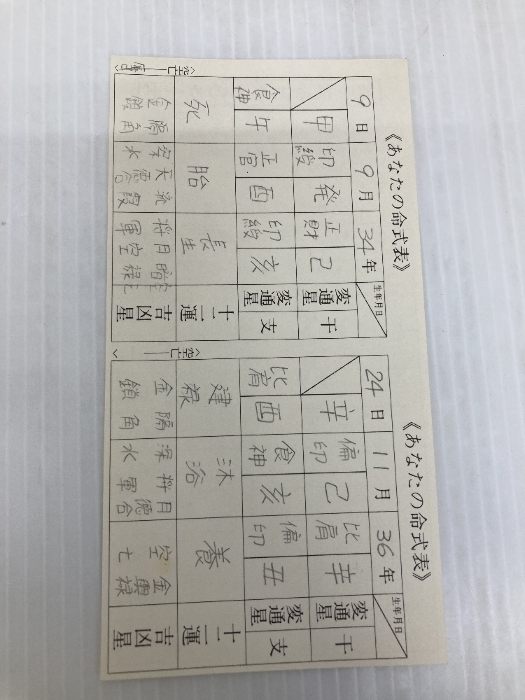 《あなたの命式表》
生年月日
34年 9月 9日
干 己 癸 甲
変通星 正財 印綬
支 亥 酉 午
変通星 印綬 正官 食神
十二運 長生 胎 死
吉凶星
将軍 日空 暗禄 天 流霞 隔角 金鎖
〈空亡
《あなたの命式表》
生年月日
36年 11月 24日
干 辛 己 辛
変通星 比肩 偏印
支 丑 亥 酉
変通星 偏印 食神 比肩
十二運 養 沐浴 建禄
吉凶星
金輿禄 空亡 日徳合 将軍 深水 隔角 金鎖
〈空亡 〉